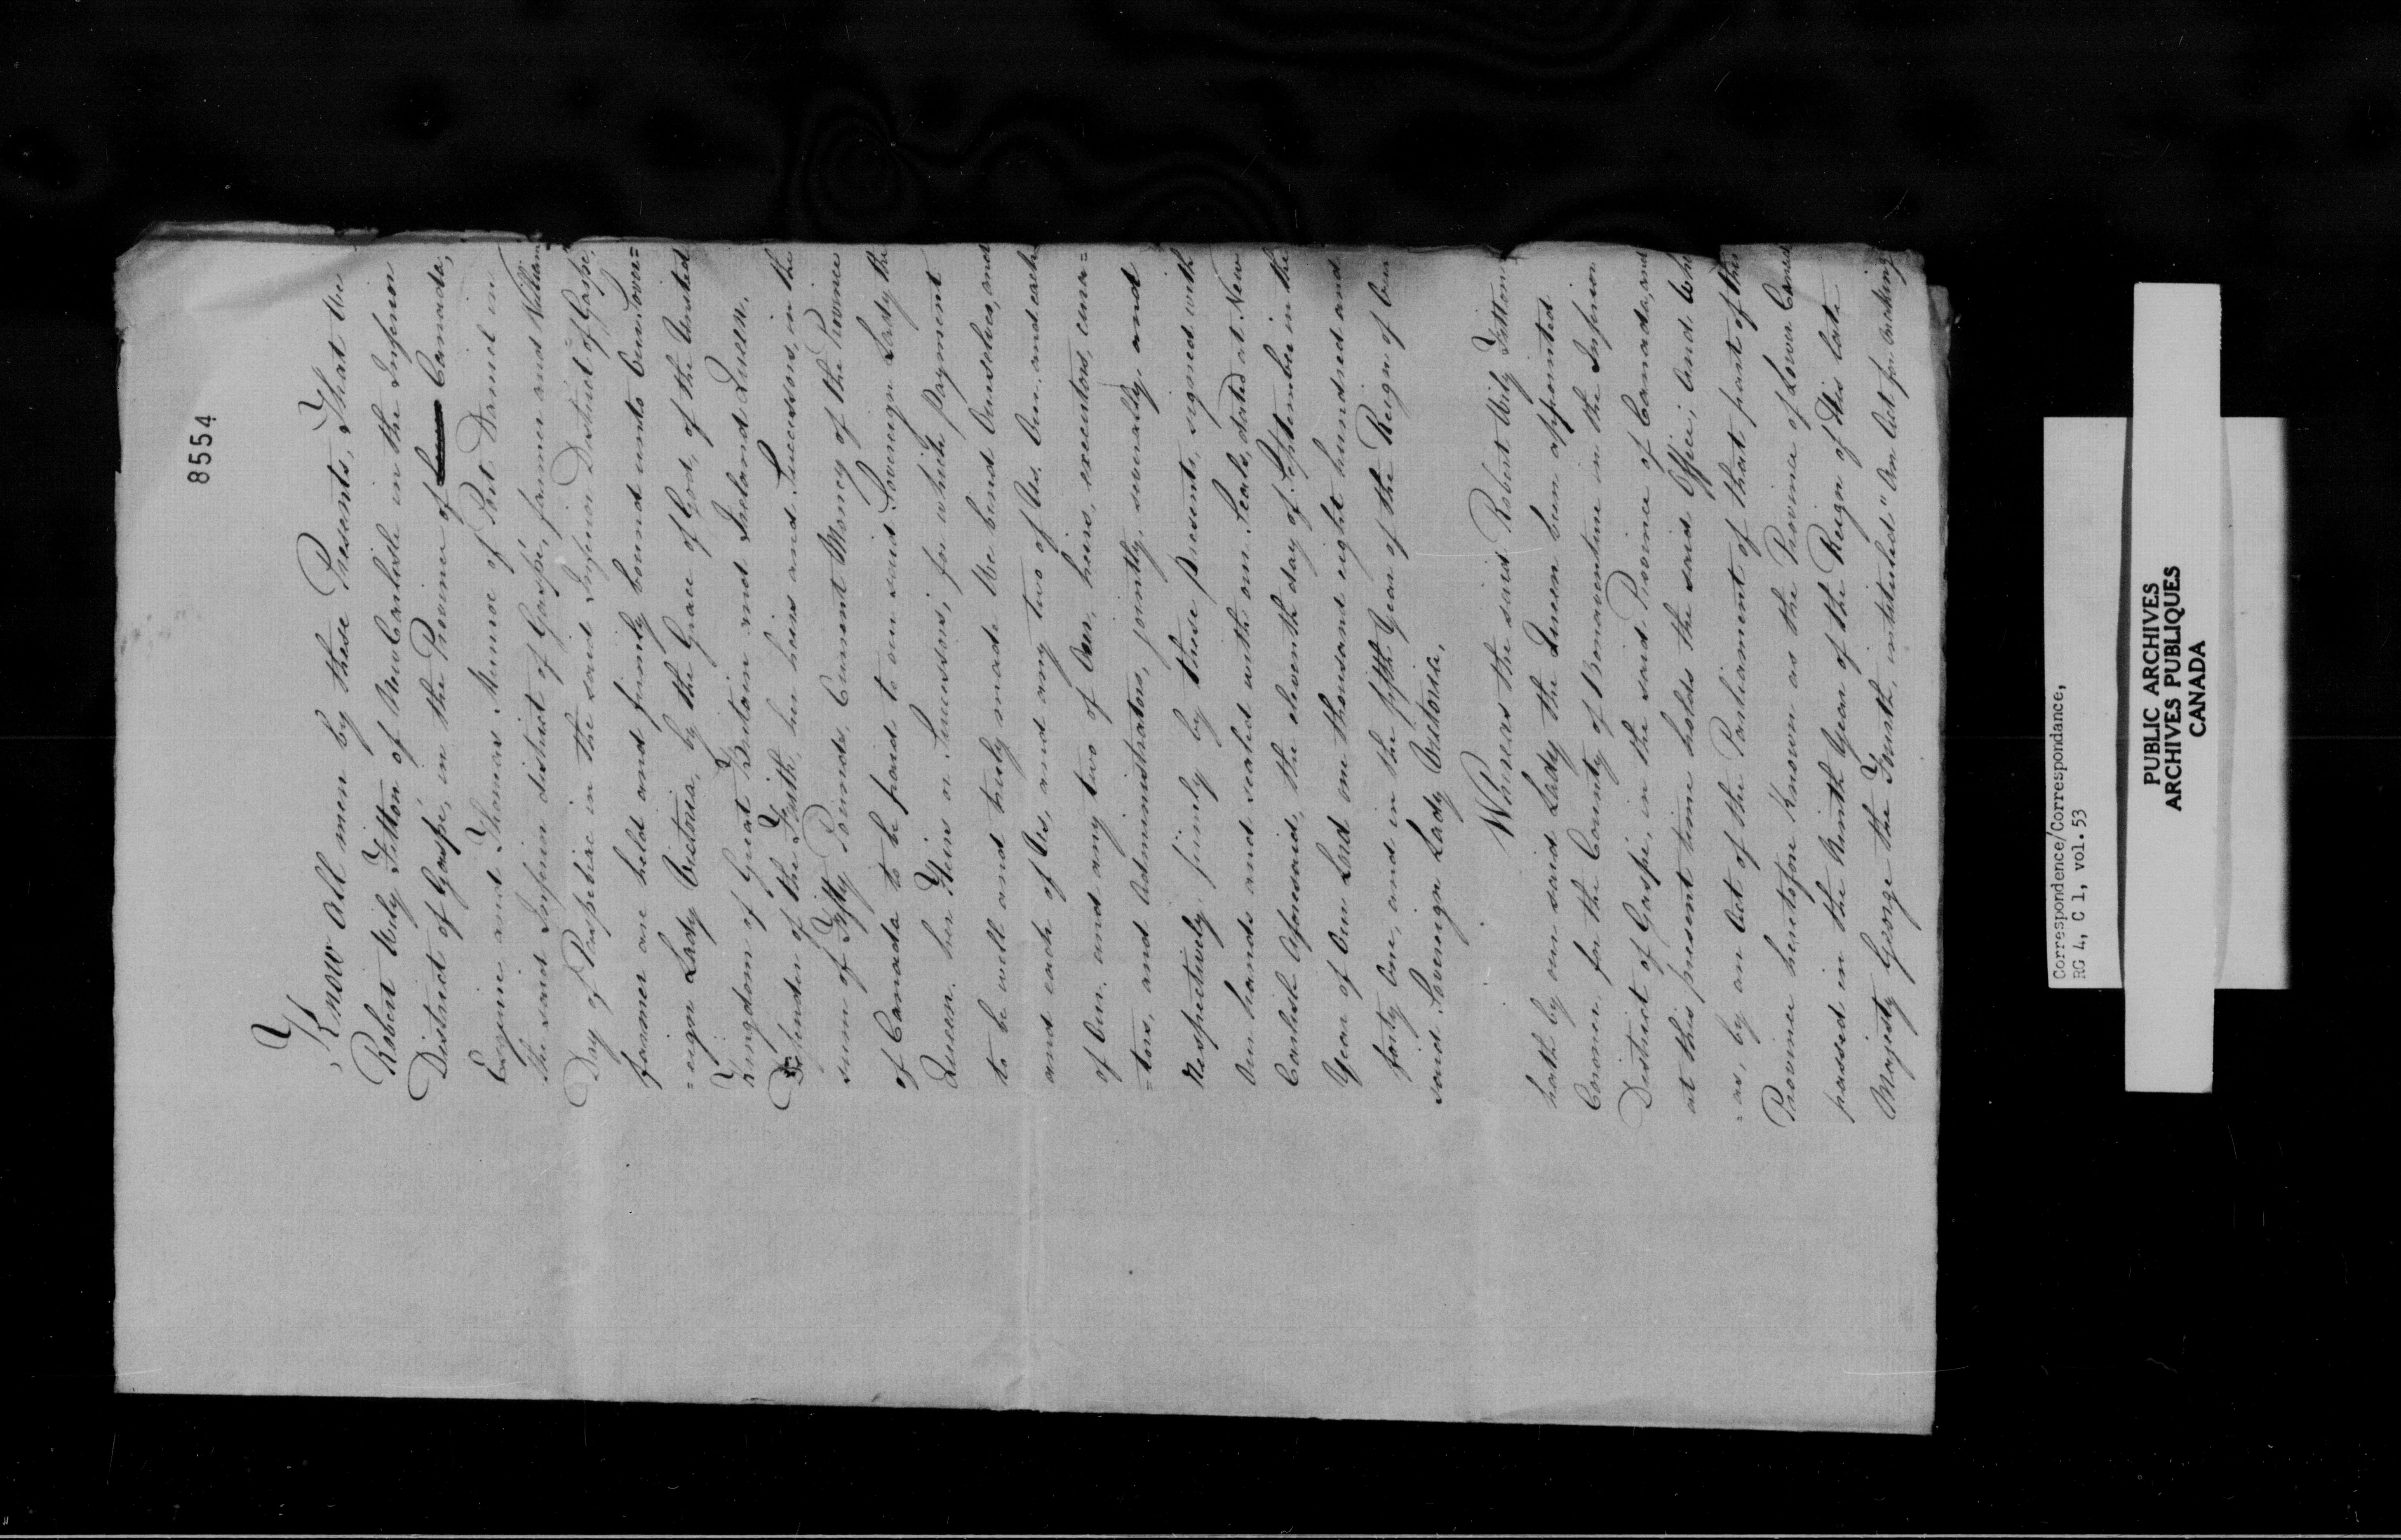 8554
Know all men by these Presents, That We
Robert Wily Fitton of New Carlisle in the Inferior
District of Gaspé, in the Province of Canada,
Esquire, and Thomas Munro of Port Daniel in
the said Inferior district of Gaspé, farmer and William
Day of Paspebiac in the said Inferior District of Gaspé,
farmer are held and firmly bound unto Our Sover=
=eign Lady Victoria, by the Grace of God, of the United
Kingdom of Great Britain and Ireland Queen,
Defender of the Faith, her heirs and Successors, in the
sum of Fifty Pounds, Current Money of the Province
of Canada to be paid to our said Sovereign Lady the
Queen, her Heirs or Successors, for which payment
to be well and truly made We bind Ourselves, and
and each of Us, and any two of Us, Our, and each
of Our, and any two of Our, heirs, executors, cura=
=tors, and Administrators, jointly, severally and
Respectively firmly by these presents, signed with
Our hands and sealed with our Seals, dated at New
Carlisle Aforesaid, the eleventh day of September in the
Year of Our Lord one thousand eight hundred and
forty One, and in the fifth Year of the Reign of Our
said Sovereign Lady Victoria.
Whereas the said Robert Wily Fitton
hath by our said Lady the Queen been appointed
Coroner, for the County of Bonaventure in the Inferior
District of Gaspé, in the said Province of Canada, and
at this present time holds the said Office; And Whe
=as, by an Act of the Parliament of that part of this
Province heretofore Known as the Province of Lower Canada
passed in the Ninth Year of the Reign of His late
Majesty George the Fourth, intituled "An Act for
Correspondence/Correspondance,
RG 4, C 1, vol. 53
PUBLIC ARCHIVES
ARCHIVES PUBLIQUES
CANADA